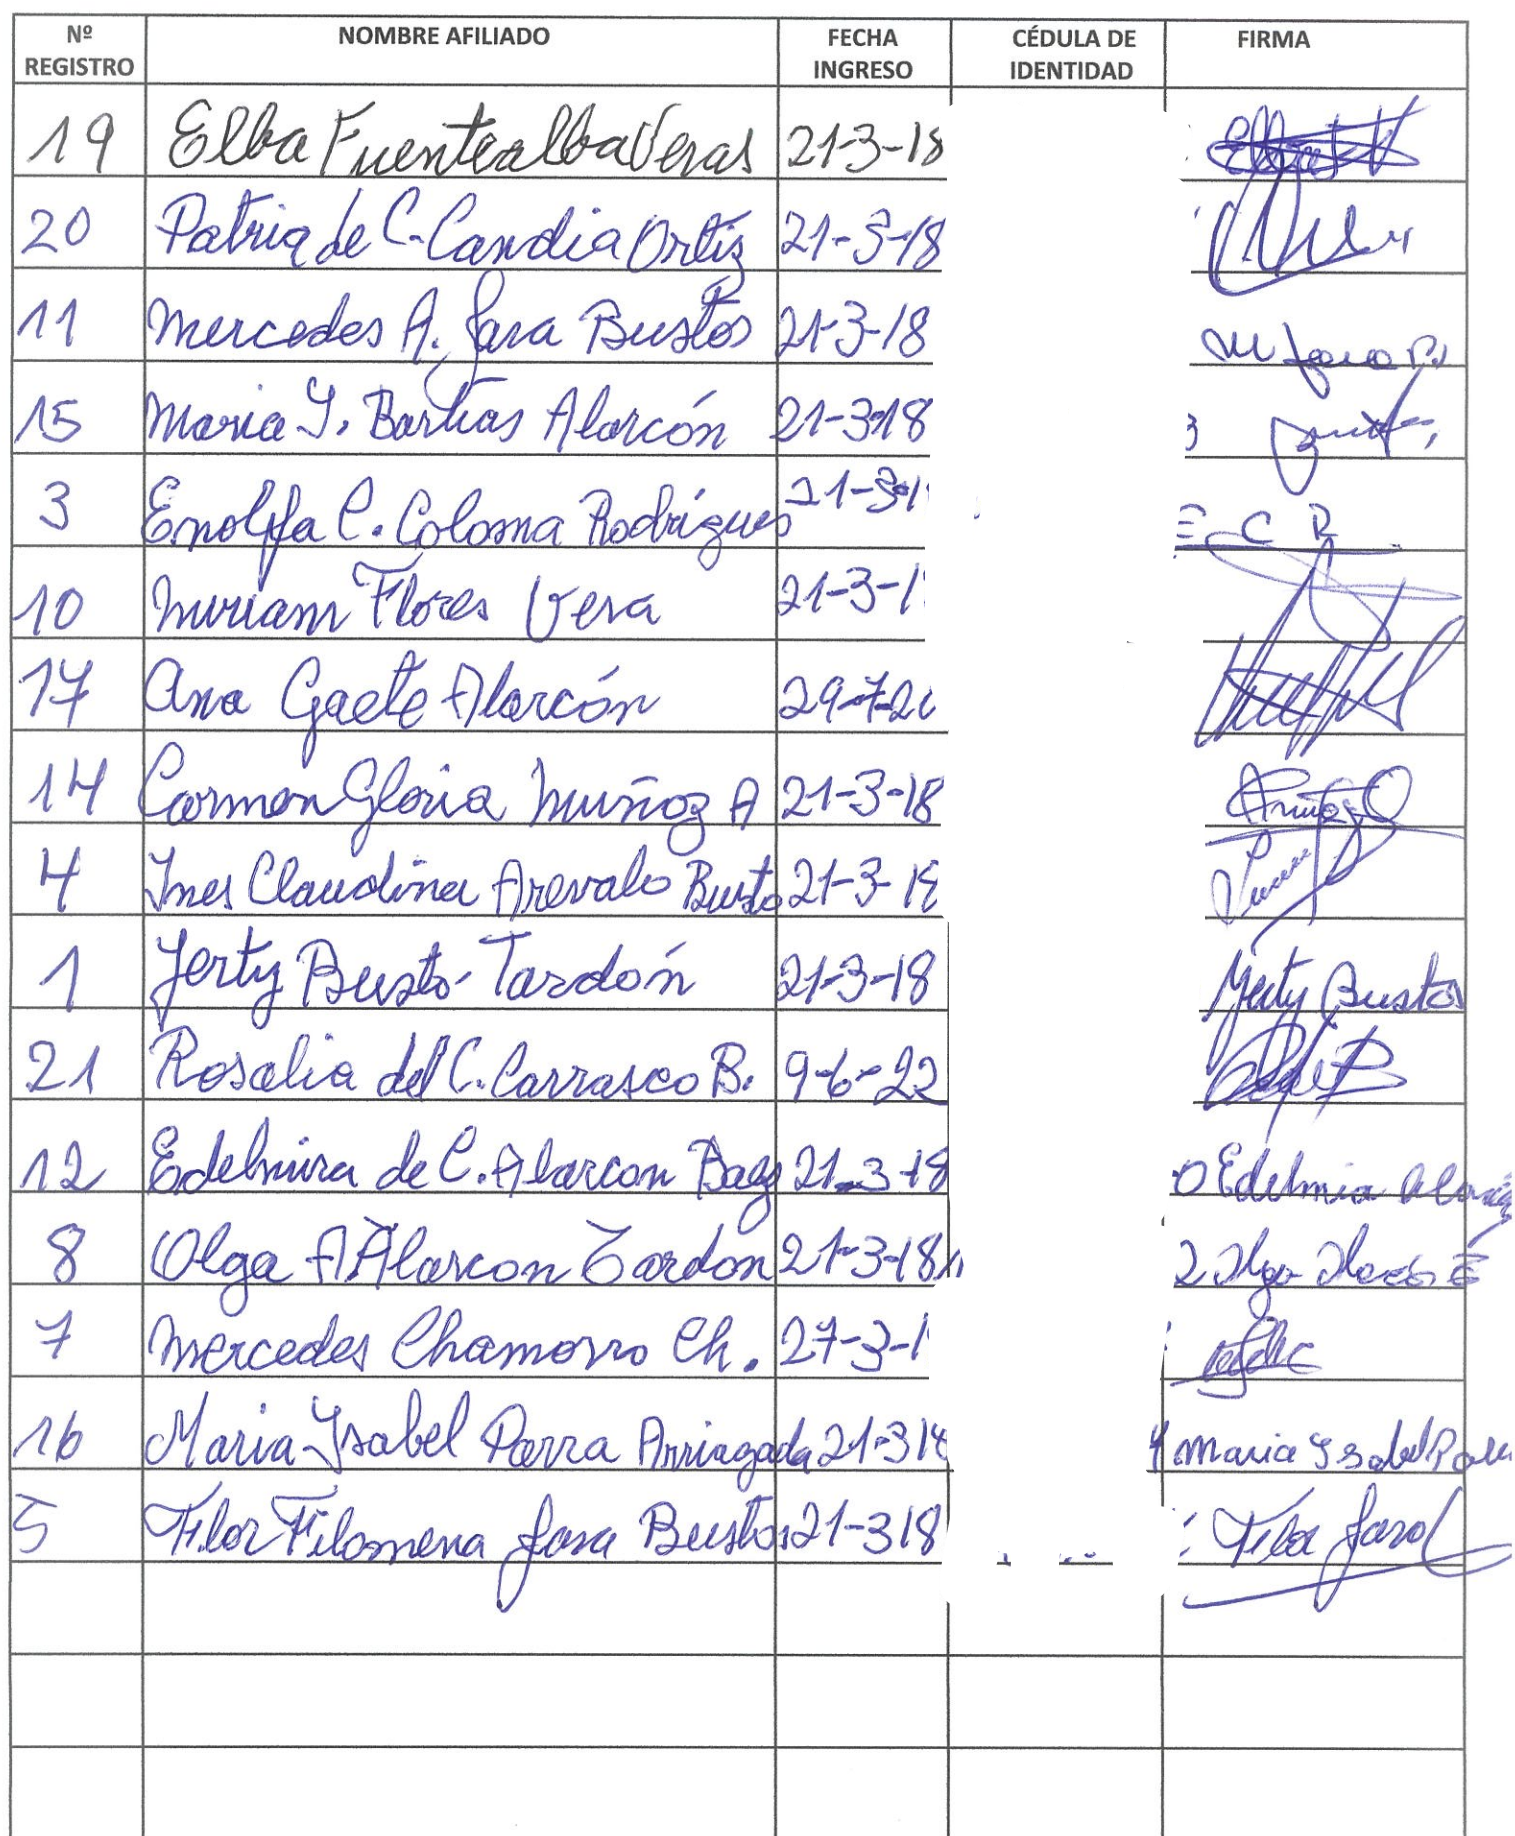 Nº REGISTRO NOMBRE AFILIADO FECHA INGRESO CÉDULA DE IDENTIDAD FIRMA
19 Elba Fuentealba Veras 21-3-18
20 Patria de C. Candia Ortiz 21-3-18
11 Mercedes A. Jara Bustos 21-3-18 M Jara B.
15 Maria Y. Barías Alarcón 21-3-18
3 C. Coloma Rodrígues 21-3-1 E C R
10 Miriam Flores Vera 21-3-1
17 Ana Gaete Alarcón 29-7-20
14 Carmen Gloria Muñoz A 21-3-18
4 Ines Claudina Arevalo Busto 21-3-18
1 Yerty Busto Tardón 21-3-18 Yerty Bustos
21 Rosalia del C. Carrasco B. 9-6-22
12 Edelmira de C. Alarcon Baez 21-3-18 0 Edelmia
8 Olga A Alarcon Tardon 21-3-18 2 Olga
7 Mercedes Chamorro Ch. 27-3-1
16 Maria Ysabel Parra Arriagada 21-3 18 Maria Ysabel
5 Flor Filomena Jara Bustos 21-3 18 Flor Jara